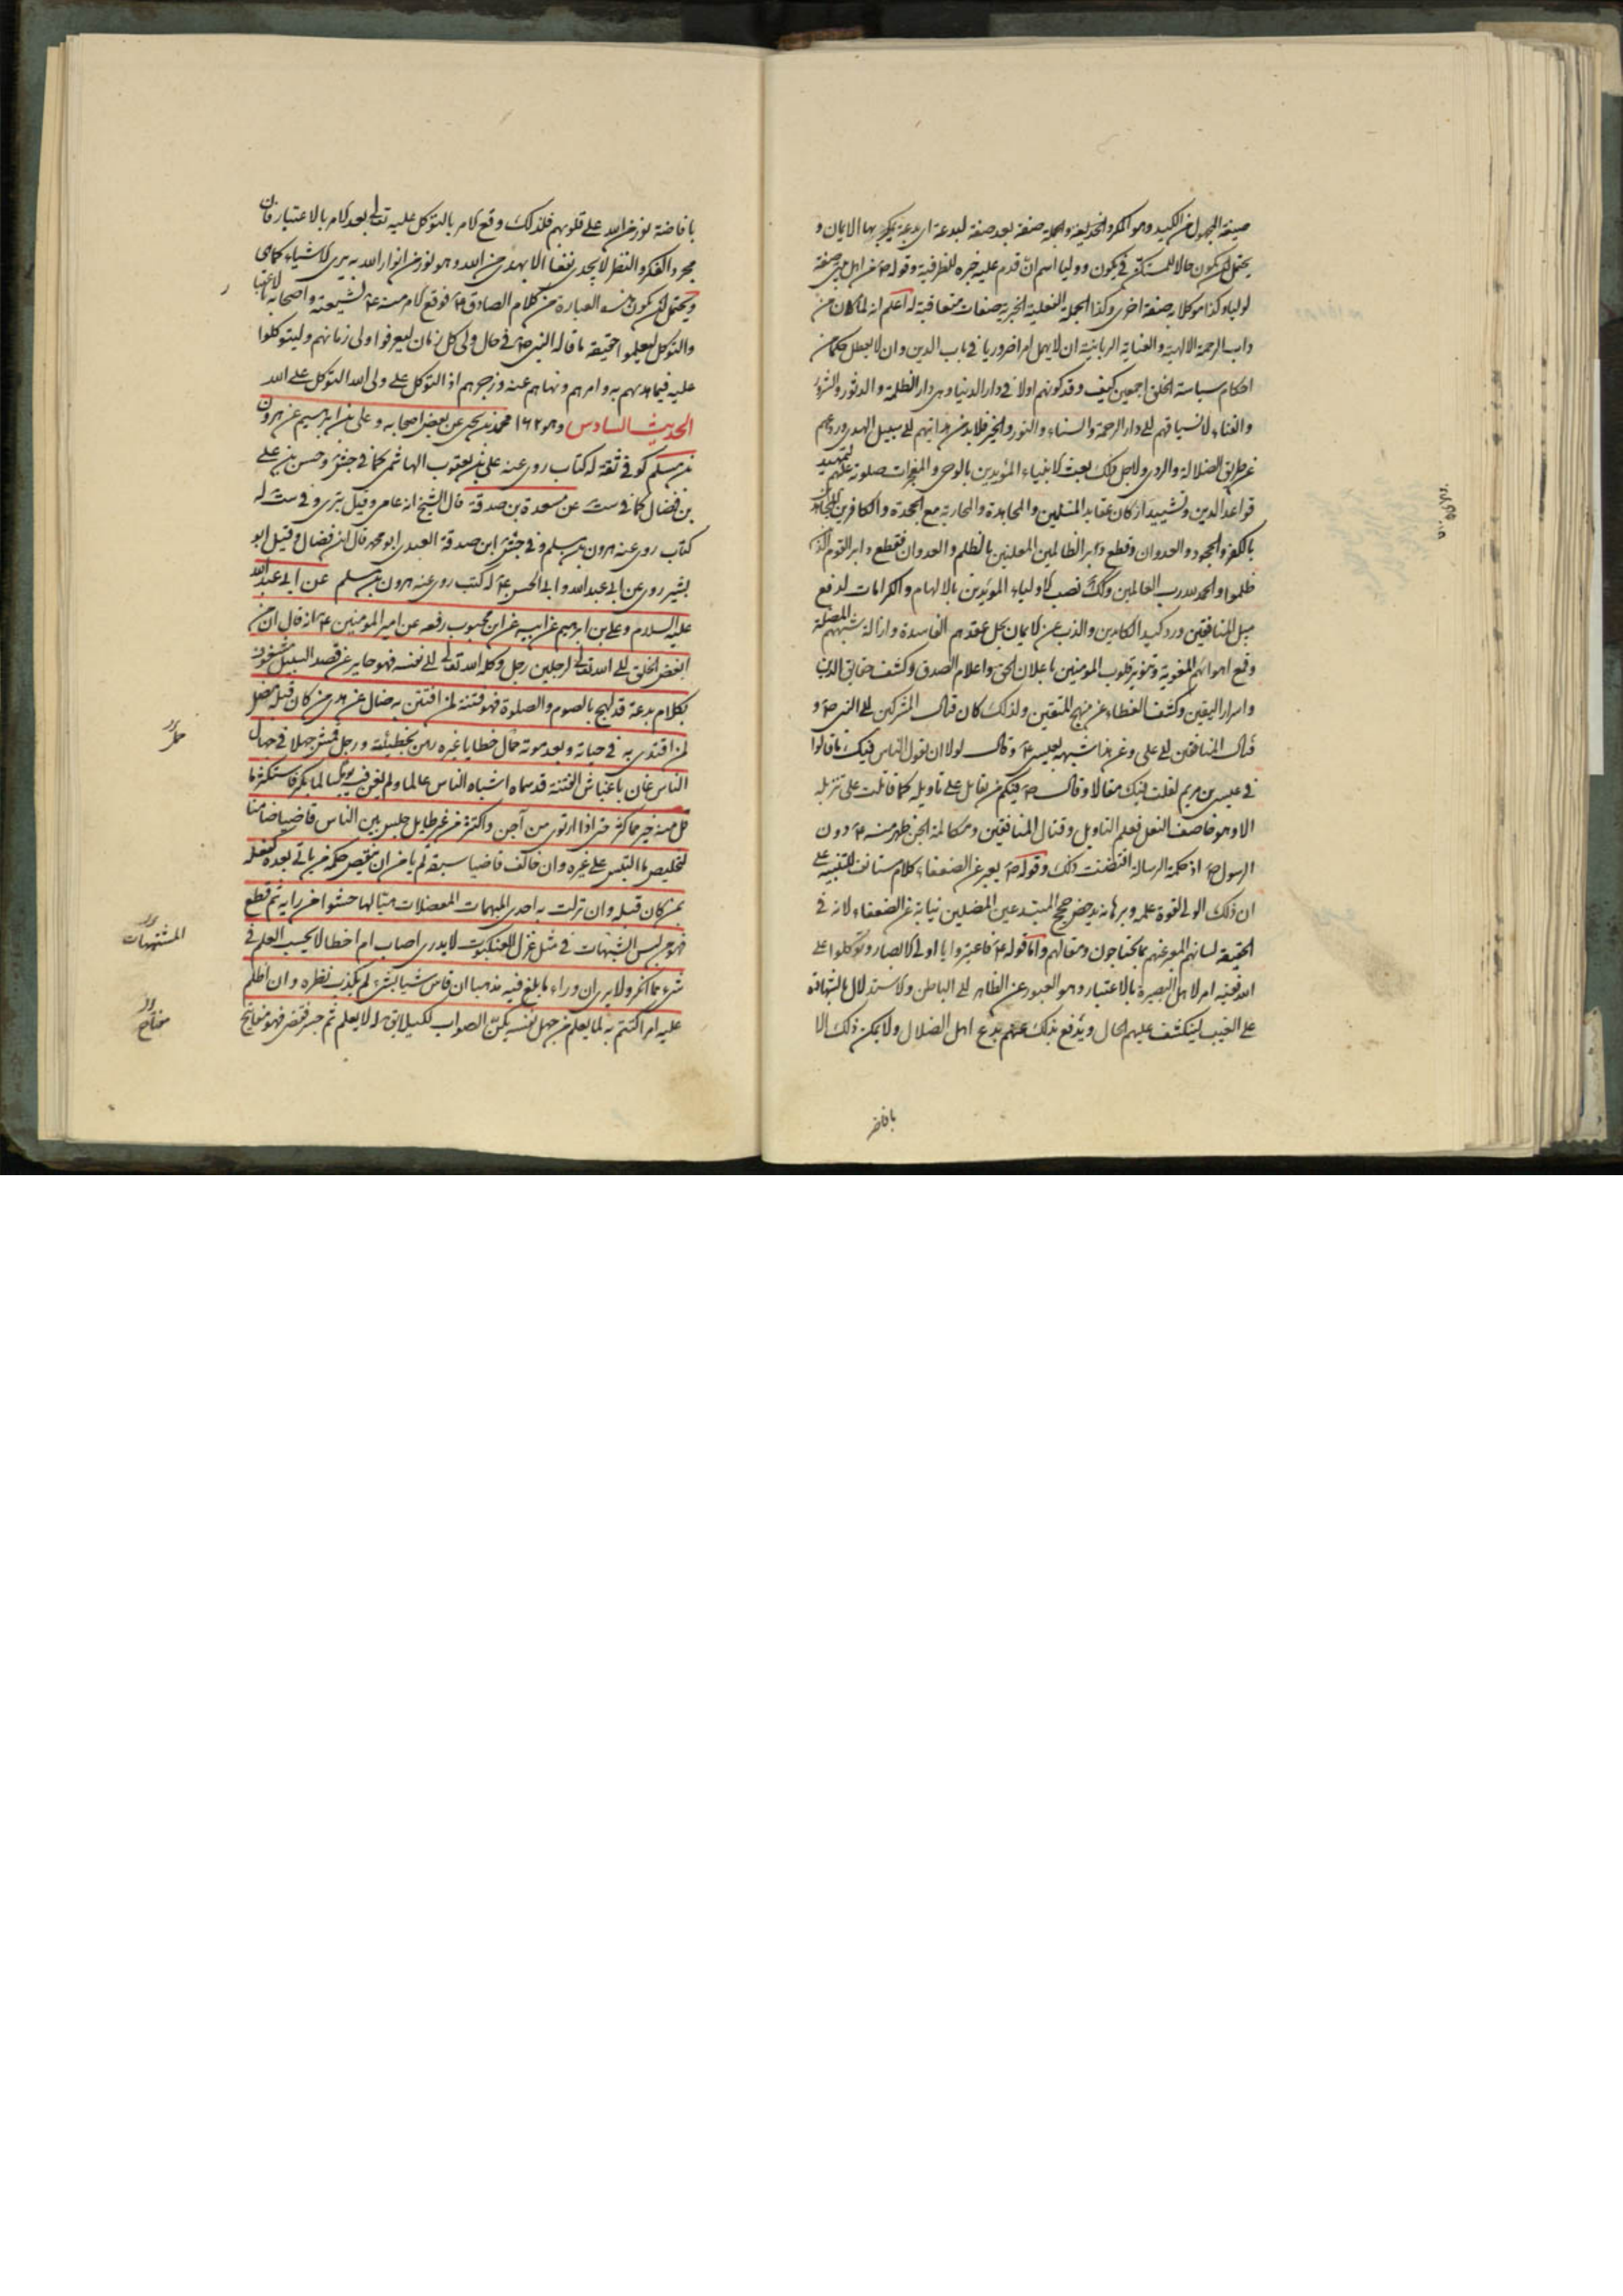 صيغة المجهول من الكيد وهو المكر والخديعة والجملة صفة بعد صفة لبدعة اى بدعة يكيد بها الايمان و
يحتمل ان يكون حالا للمستكن فى يكون ووليا اسم ان قدم عليه خبره للظرفية وقوله من اهل بيتى صفة
لوليا وكذا موكلا به صفة اخرى وكذا الجملة الفعلية الخبرية صفات متعاقبة له اعلم انه لما كان من
داب الرحمة الالهية والعناية الربانية ان لا يهمل امرا ضروريا فى باب الدين وان لا يعطل حكما من
احكام سياسة الخلق اجمعين كيف وقد كونهم اولا فى دار الدنيا وهى دار الظلمة والدثور والشرور
والفناء لانسياقهم الى دار الرحمة والسناء والنور والخير فلابد من هدايتهم الى سبيل الهدى وردعهم
عن طريق الضلالة والردى ولاجل ذلك بعث الانبياء المؤيدين بالوحى والمعجزات صلوة عليهم لتمهيد
قواعد الدين وتشييد اركان عقايد المسلمين والمجاهدة والمحاربة مع الجحدة والكافرين
بالكفر والجحود والعدوان وقطع دابر الظالمين المعلنين بالظلم والعدوان فقطع دابر القوم الذين
ظلموا والحمد لله رب العالمين وكذلك نصب الاولياء المؤيدين بالالهام والكرامات لدفع
حيل المنافقين ورد كيد الكايدين والذب عن الايمان بحل عقدهم الفاسدة وازالة شبههم المضلة
وقع اهوائهم المغوية وتنوير قلوب المومنين باعلان الحق واعلام الصدق وكشف حقايق الدين
واسرار اليقين وكشف الغطاء عن منهج المتقين ولذلك كان قتال المشركين الى النبى ص و
قتال المنافقين الى على وعن هذا شبهه بعيسى ع وقال لولا ان يقول الناس فيك ما قالوا
فى عيسى بن مريم لقلت فيك مقالا وقال ص فيكم من يقاتل على تاويله كما قاتلت على تنزيله
الا وهو خاصف النعل فعلم التاويل وقتال المنافقين ومكالمة الجن ظهر منه ع دون
الرسول ص اذ حكمة الرسالة اقتضت ذلك وقوله ص يعبر عن الضعفاء كلام مستانف للتنبيه على
ان ذلك الولى لقوة علمه وبرهانه يدحض حجج المبتدعين المضلين نيابة عن الضعفاء لانه فى
الحقيقة لسانهم المعبر عنهم بما يحتاجون ومقالهم واما قوله ع فاعتبروا يا اولى الابصار وتوكلوا على
الله فتنبيه امر لاهل البصيرة بالاعتبار وهو العبور عن الظاهر الى الباطن والاستدلال بالشهادة
على الغيب لينكشف عليهم الحال ويدفع بذلك عنهم بدع اهل الضلال ولا يمكن ذلك الا
بافاضة
بافاضة نور من الله على قلوبهم فلذلك وقع الامر بالتوكل عليه تعالى بعد الامر بالاعتبار فان
مجرد الفكر والنظر لا يجدى نفعا الا بهدى من الله وهو نور من انوار الله به يرى الاشياء كما هى
ويحتمل ان يكون هذه العبارة من كلام الصادق ع فوقع الامر منه ع لشيعته واصحابه بالاعتبار
والتوكل ليعلموا حقيقة ما قاله النبى ص فى حال ولى كل زمان ليعرفوا ولى زمانهم وليتوكلوا
عليه فيما هديهم به وامرهم ونهاهم عنه وزجرهم اذ التوكل على ولى الله التوكل على الله
الحديث السادس وهو ١٦٢ محمد بن يحيى عن بعض اصحابه وعلى بن ابرهيم عن هرون
بن مسلم كوفى ثقة له كتاب روى عنه على بن يعقوب الهاشمى كما فى جش وحسن بن على
بن فضال كما فى ست عن مسعدة بن صدقة قال الشيخ انه عامى وقيل بترى وفى ست له
كتاب روى عنه هرون بن مسلم وفى جش ابن صدقة العبدى ابو محمد قال ابن فضال وقيل ابو
بشير روى عن ابى عبد الله وابى الحسن ع له كتب روى عنه هرون بن مسلم عن ابى عبد الله
عليه السلام وعلى بن ابرهيم عن ابيه عن ابن محبوب رفعه عن امير المومنين ع انه قال ان من
ابغض الخلق الى الله تعالى لرجلين رجل وكله الله تعالى الى نفسه فهو جاير عن قصد السبيل مشغوف
بكلام بدعة قد لهج بالصوم والصلوة فهو فتنة لمن افتتن به ضال عن هدى من كان قبله مضل
لمن اقتدى به فى حياته وبعد موته حمال خطايا غيره رهن بخطيئته ورجل قمش جهلا فى جهال
الناس عان باغباش الفتنة قد سماه اشباه الناس عالما ولم يغن فيه يوما سالما بكر فاستكثر ما
قل منه خير مما كثر حتى اذا ارتوى من آجن واكتنز من غير طايل جلس بين الناس قاضيا ضامنا
لتخليص ما التبس على غيره وان خالف قاضيا سبقه لم يامن ان ينقض حكمه من ياتى بعده كفعله
بمن كان قبله وان نزلت به احدى المبهمات المعضلات هيا لها حشوا من رايه ثم قطع
فهو من لبس الشبهات فى مثل غزل العنكبوت لا يدرى اصاب ام اخطا لا يحسب العلم فى
شىء مما انكر ولا يرى ان وراء ما بلغ فيه مذهبا ان قاس شيئا بشىء لم يكذب نظره وان اظلم
عليه امر اكتتم به لما يعلم من جهل نفسه لكيلا يقال له لا يعلم ثم جسر فقضى فهو مفاتيح
المشتبهات
مفتاح